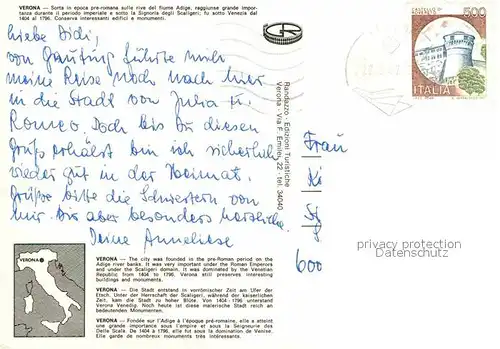 VERONA - Sorta in epoca pre-romana sulle rive del fiume Adige, raggiunse grande impor-
tanza durante il periodo imperiale e sotto la Signoria degli Scaligeri; fu sotto Venezia dal
1404 al 1796. Conserva interessanti edifici e monumenti.
Liebe Didi,
von Gauting führte mich
meine Reise noch nach hier
in die Stadt von Julia u.
Romeo. Doch bis Du diesen
Gruß erhälst bin ich sicherlich
wieder gut in der Heimat.
Grüße bitte die Schwestern von
mir. Dir aber besonders herzliche
Deine Anneliese
Randazzo - Edizioni Turistiche
Verona - Via F. Emilei, 22 - tel. 34040
500
ITALIA
Frau
Ki
600
privacy protection
Datenschutz
VERONA
VERONA - The city was founded in the pre-Roman period on the
Adige river banks. It was very important under the Roman Emperors
and under the Scaligeri domain. It was dominated by the Venetian
Republic from 1404 to 1796. Verona still preserves interesting
buildings and monuments.
VERONA - Die Stadt entstand in vorrömischer Zeit am Ufer der
Etsch. Unter der Herrschaft der Scaligeri, während der kaiserlichen
Zeit, kam die Stadt zu hoher Blüte. Von 1404 - 1796 unterstand
Verona Venedig. Noch heute ist diese malerische Stadt reich an
bedeutenden Monumenten.
VERONA - Fondée sur l'Adige à l'époque pré-romaine, elle a atteint
une grande importance sous l'empire et sous la Seigneurie des
Della Scala. De 1404 à 1796, elle fut sous la domination de Venise.
Elle garde de nombreux monuments très intéressants.